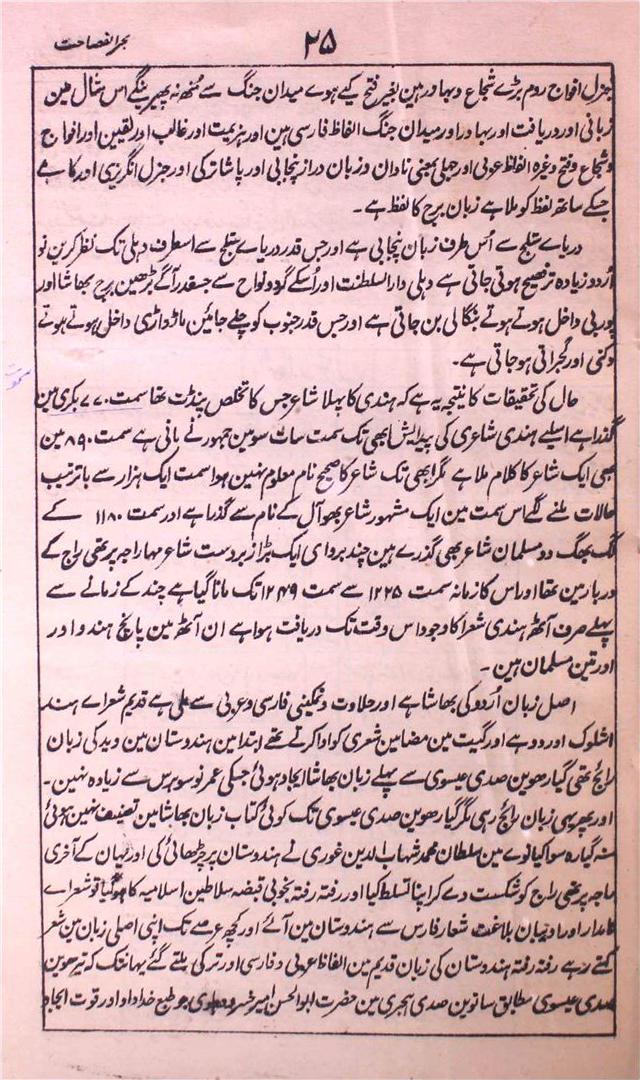 ۲۵
بحر الفصاحت
جنرل افواج روم بڑے شجاع و بہادر ہین بغیر فتح کیے ہوے میدان جنگ سے مُنھ نہ پھیرینگے اس مثال مین
زبانی اور دریافت اور بہادر اور میدان جنگ الفاظ فارسی ہین اور ہزیمت اور غالب اور یقین اور افواج
و شجاع و فتح وغیرہ الفاظ عربی اور جھلی بمعنی نادان و زبان دراز پنجابی اور پاشا ترکی اور جنرل انگریزی اور کا ہے
جسکے ساتھ لفظ کو ملا ہے زبان برج کا لفظ ہے۔
دریاے ستلج سے اُس طرف زبان پنجابی ہے اور جس قدر دریاے ستلج سے اسطرف دہلی تک نظر کرین تو
اُردو زیادہ تر فصیح ہوتی جاتی ہے دہلی دارالسلطنت اور اُسکے گرد و نواح سے جسقدر آگے بڑھین برج بھاشا اور
پوربی داخل ہوتے ہوتے بنگالی بن جاتی ہے اور جس قدر جنوب کو چلے جائین ماڑواڑی داخل ہوتے ہوتے
دکنی اور گجراتی ہو جاتی ہے۔
حال کی تحقیقات کا نتیجہ یہ ہے کہ ہندی کا پہلا شاعر جس کا تخلص پنڈت تھا سمت ۷۷۰ بکرمی مین
گذرا ہے اسلیے ہندی شاعری کی پیدایش ابھی تک سمت سات سو مین جمہور نے مانی ہے سمت ۸۹۰ مین
بھی ایک شاعر کا کلام ملا ہے مگر ابھی تک شاعر کا صحیح نام معلوم نہین ہوا سمت ایک ہزار سے با ترتیب
حالات ملنے لگے اس سمت مین ایک مشہور شاعر بھوآل کے نام سے گذرا ہے اور سمت ۱۱۸۰ کے
لگ بھگ دو مسلمان شاعر بھی گذرے ہین چند بردای ایک بڑا زبردست شاعر مہاراجہ پرتھی راج کے
دربار مین تھا اور اس کا زمانہ سمت ۱۲۲۵ سے سمت ۱۲۴۹ تک مانا گیا ہے چند کے زمانے سے
پہلے صرف آٹھ ہندی شعرا کا وجود اس وقت تک دریافت ہوا ہے ان آٹھ مین پانچ ہندو اور
اور تین مسلمان ہین۔
اصل زبان اُردو کی بھاشا ہے اور حلاوت و نمکینی فارسی و عربی سے ملی ہے قدیم شعراے ہند
اشلوک اور دوہے اور گیت مین مضامین شعری کو ادا کرتے تھے ابتدا مین ہندوستان مین وید کی زبان
رائج تھی گیارھوین صدی عیسوی سے پہلے زبان بھاشا ایجاد ہوئی جسکی عمر نو سو برس سے زیادہ نہین۔
اور پھر یہی زبان رائج رہی مگر گیارھوین صدی عیسوی تک کوئی کتاب زبان بھاشا مین تصنیف نہین ہوئی
سنہ گیارہ سو اکیانوے مین سلطان محمد شہاب الدین غوری نے ہندوستان پر چڑھائی کی اور یہان کے آخری
راجہ پرتھی راج کو شکست دے کر اپنا تسلط کیا اور رفتہ رفتہ بخوبی قبضہ سلاطین اسلامیہ کا ہو گیا تو شعراے
نامدار اور ادیبان بلاغت شعار فارس سے ہندوستان مین آئے اور کچھ عرصے تک اپنی اصلی زبان مین شعر
کہتے رہے رفتہ رفتہ ہندوستان کی زبان قدیم مین الفاظ عربی و فارسی اور ترکی ملتے گئے یہانتک کہ تیرھوین
صدی عیسوی مطابق ساتوین صدی ہجری مین حضرت ابوالحسن امیر خسرو دہلوی جو طبع خداداد اور قوت ایجاد